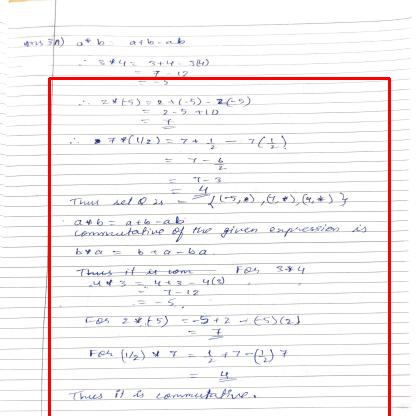 a * b = a+b-ab
∴ 3*4 = 3+4-3(4)
= 7-12
= -5
∴ 2*(-5) = 2+(-5)-2(-5)
= 2-5+10
= 7
∴ 7*(1/2) = 7+1/2 - 7(1/2)
= 7-6/2
= 7-3
= 4
Thus set Q is = {(-5,*), (7,*), (4,*)}
a*b = a+b-ab
commutative of the given expression is
b*a = b+a-ba
Thus it is com For 3*4
4*3 = 4+3-4(3)
= 7-12
= -5.
For 2*(-5) = -5+2-(-5)(2)
= 7
For (1/2)*7 = 1/2+7-(1/2)7
= 4
Thus it is commutative.